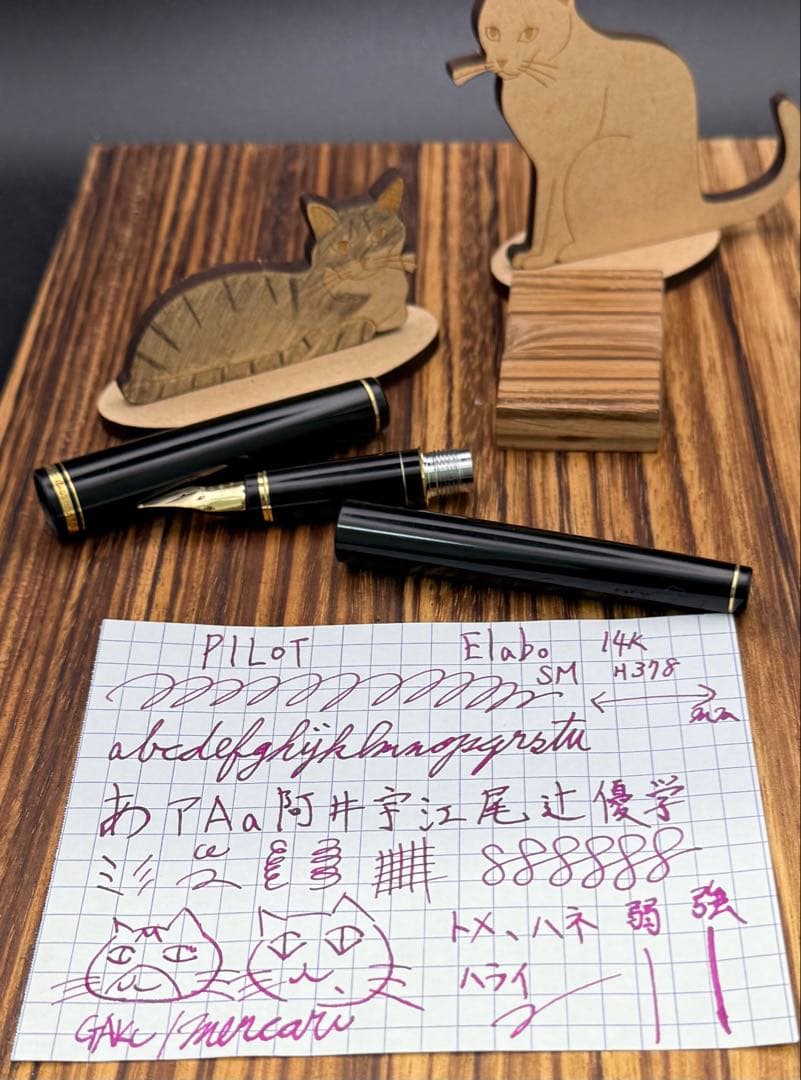 PILOT Elabo 14K
SM H378
abcdefghijklmnopqrstu
あアAa阿井宇江尾辻優学
トメ、ハネ 弱 強
ハライ
GAKu/mercari